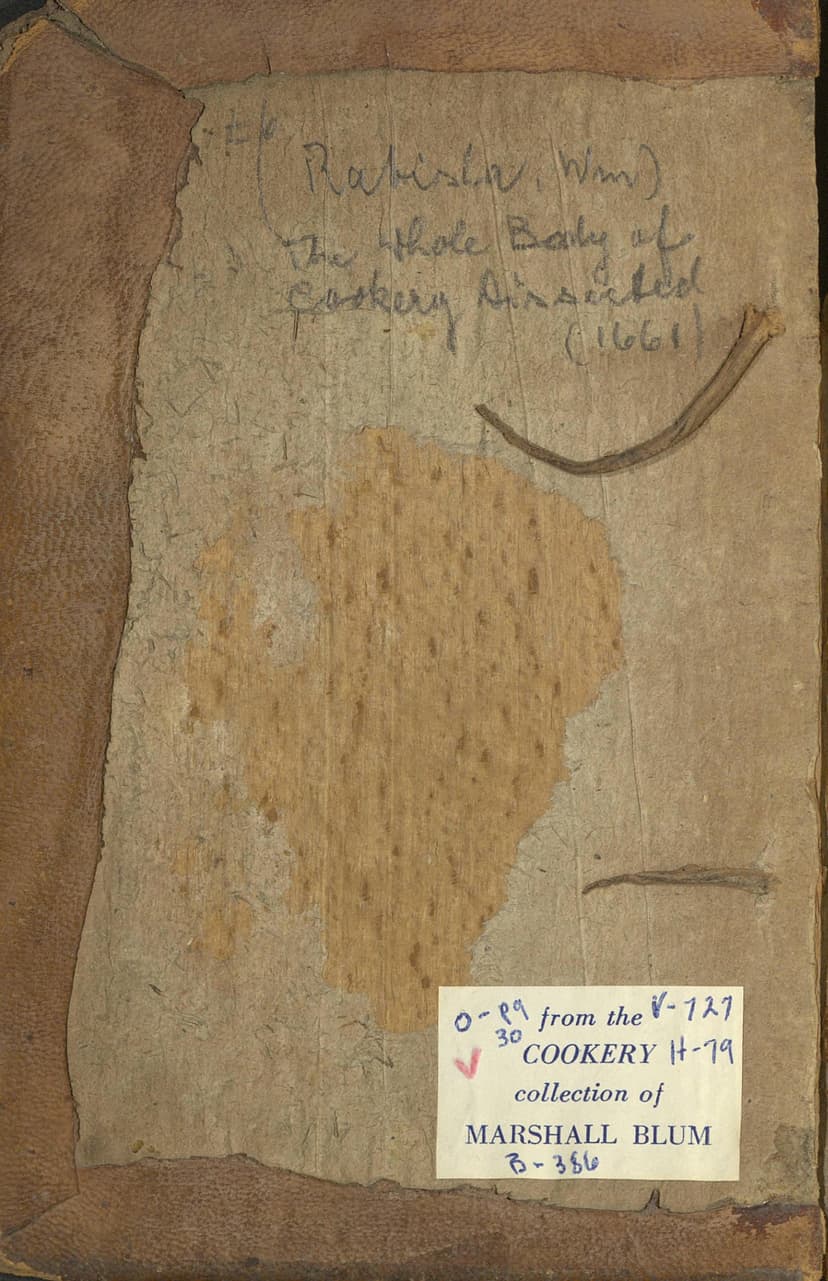 (Rabisha, Wm)
The Whole Body of
Cookery Dissected
(1661)
O-P9 from the V-727
30 COOKERY H-79
collection of
MARSHALL BLUM
B-386